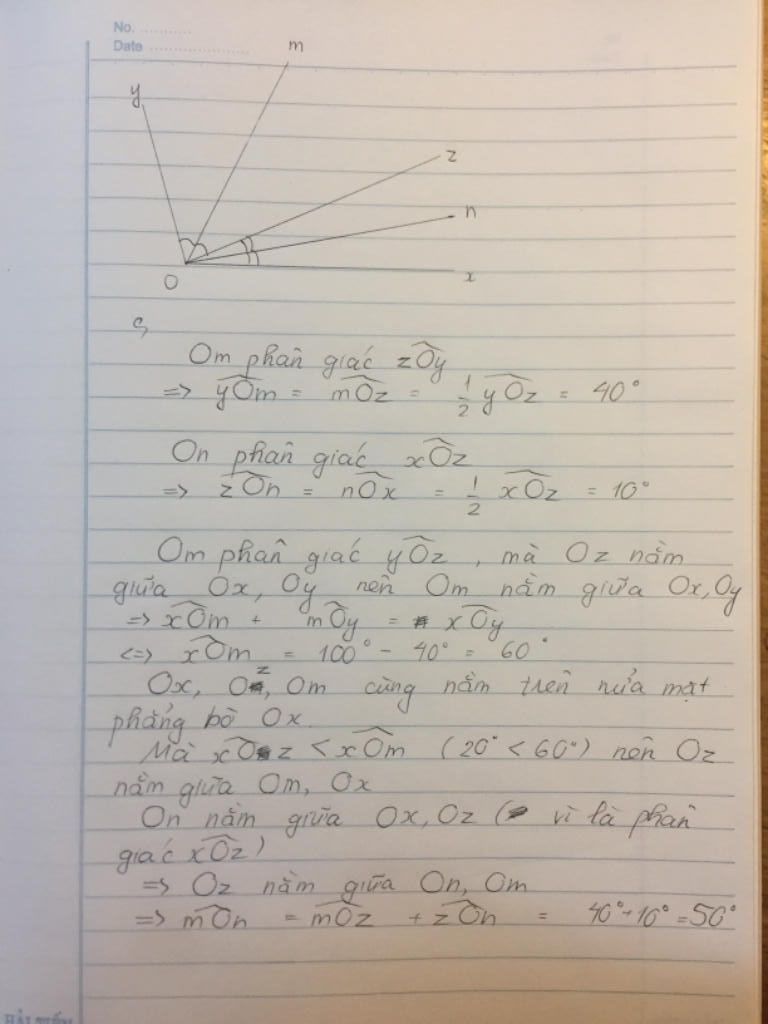 No. ...........
Date .......................
m
y
z
n
O
x
c,
Om phân giác zÔy
=> yÔm = mÔz = 1/2 yÔz = 40°
On phân giác xÔz
=> zÔn = nÔx = 1/2 xÔz = 10°
Om phân giác yÔz, mà Oz nằm
giữa Ox, Oy nên Om nằm giữa Ox, Oy
=> xÔm + mÔy = xÔy
<=> xÔm = 100° - 40° = 60°
Ox, Oz, Om cùng nằm trên nửa mặt
phẳng bờ Ox.
Mà xÔz < xÔm (20° < 60°) nên Oz
nằm giữa Om, Ox
On nằm giữa Ox, Oz ( vì là phân
giác xÔz)
=> Oz nằm giữa On, Om
=> mÔn = mÔz + zÔn = 40° + 10° = 50°